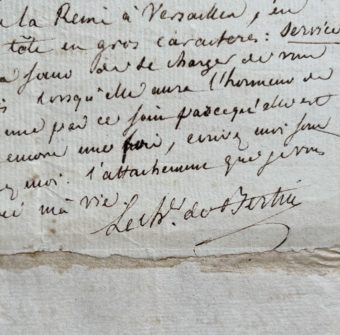 a la Reine à Versailles, en
tête en gros caractères: Service
de se charger de
lorsqu'elle aura l'honneur de
une par ce soin parcequ'elle est
encore une fois, ecrivez moi sous
ez moi. l'attachement que je vous
ma vie.
Le chr. de Bertin